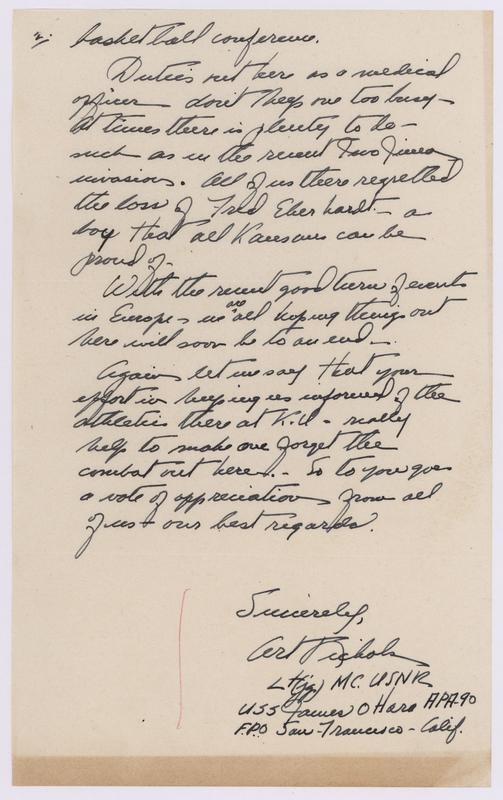 2/.
basketball conference.
Duties out here as a medical
officer don't keep one too busy -
At times there is plenty to do -
such as in the recent Iwo Jima
invasion. All of us there regretted
the loss of Fred Eberhardt - a
boy that all Kansans can be
proud of.
With the recent good turn of events
in Europe - we are all hoping things out
here will soon be to an end -.
Again let me say that your
effort in keeping us informed of the
athletics there at K.U - really
help to make one forget the
combat out here. - So to you goes
a vote of appreciation from all
of us & our best regards.
Sincerely,
Art Nichols
Lt(jg) MC. USNR
USS James O'Hara APA 90
F.P.O San-Francisco - Calif.